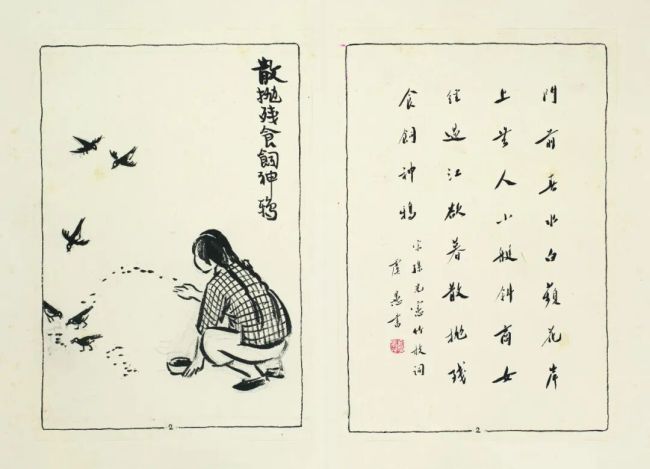 散抛残食飼神鴉
2
門前春水白蘋花岸
上無人小艇斜商女
經過江欲暮散抛残
食飼神鴉
宋孫光憲竹枝詞
虞愚書
2